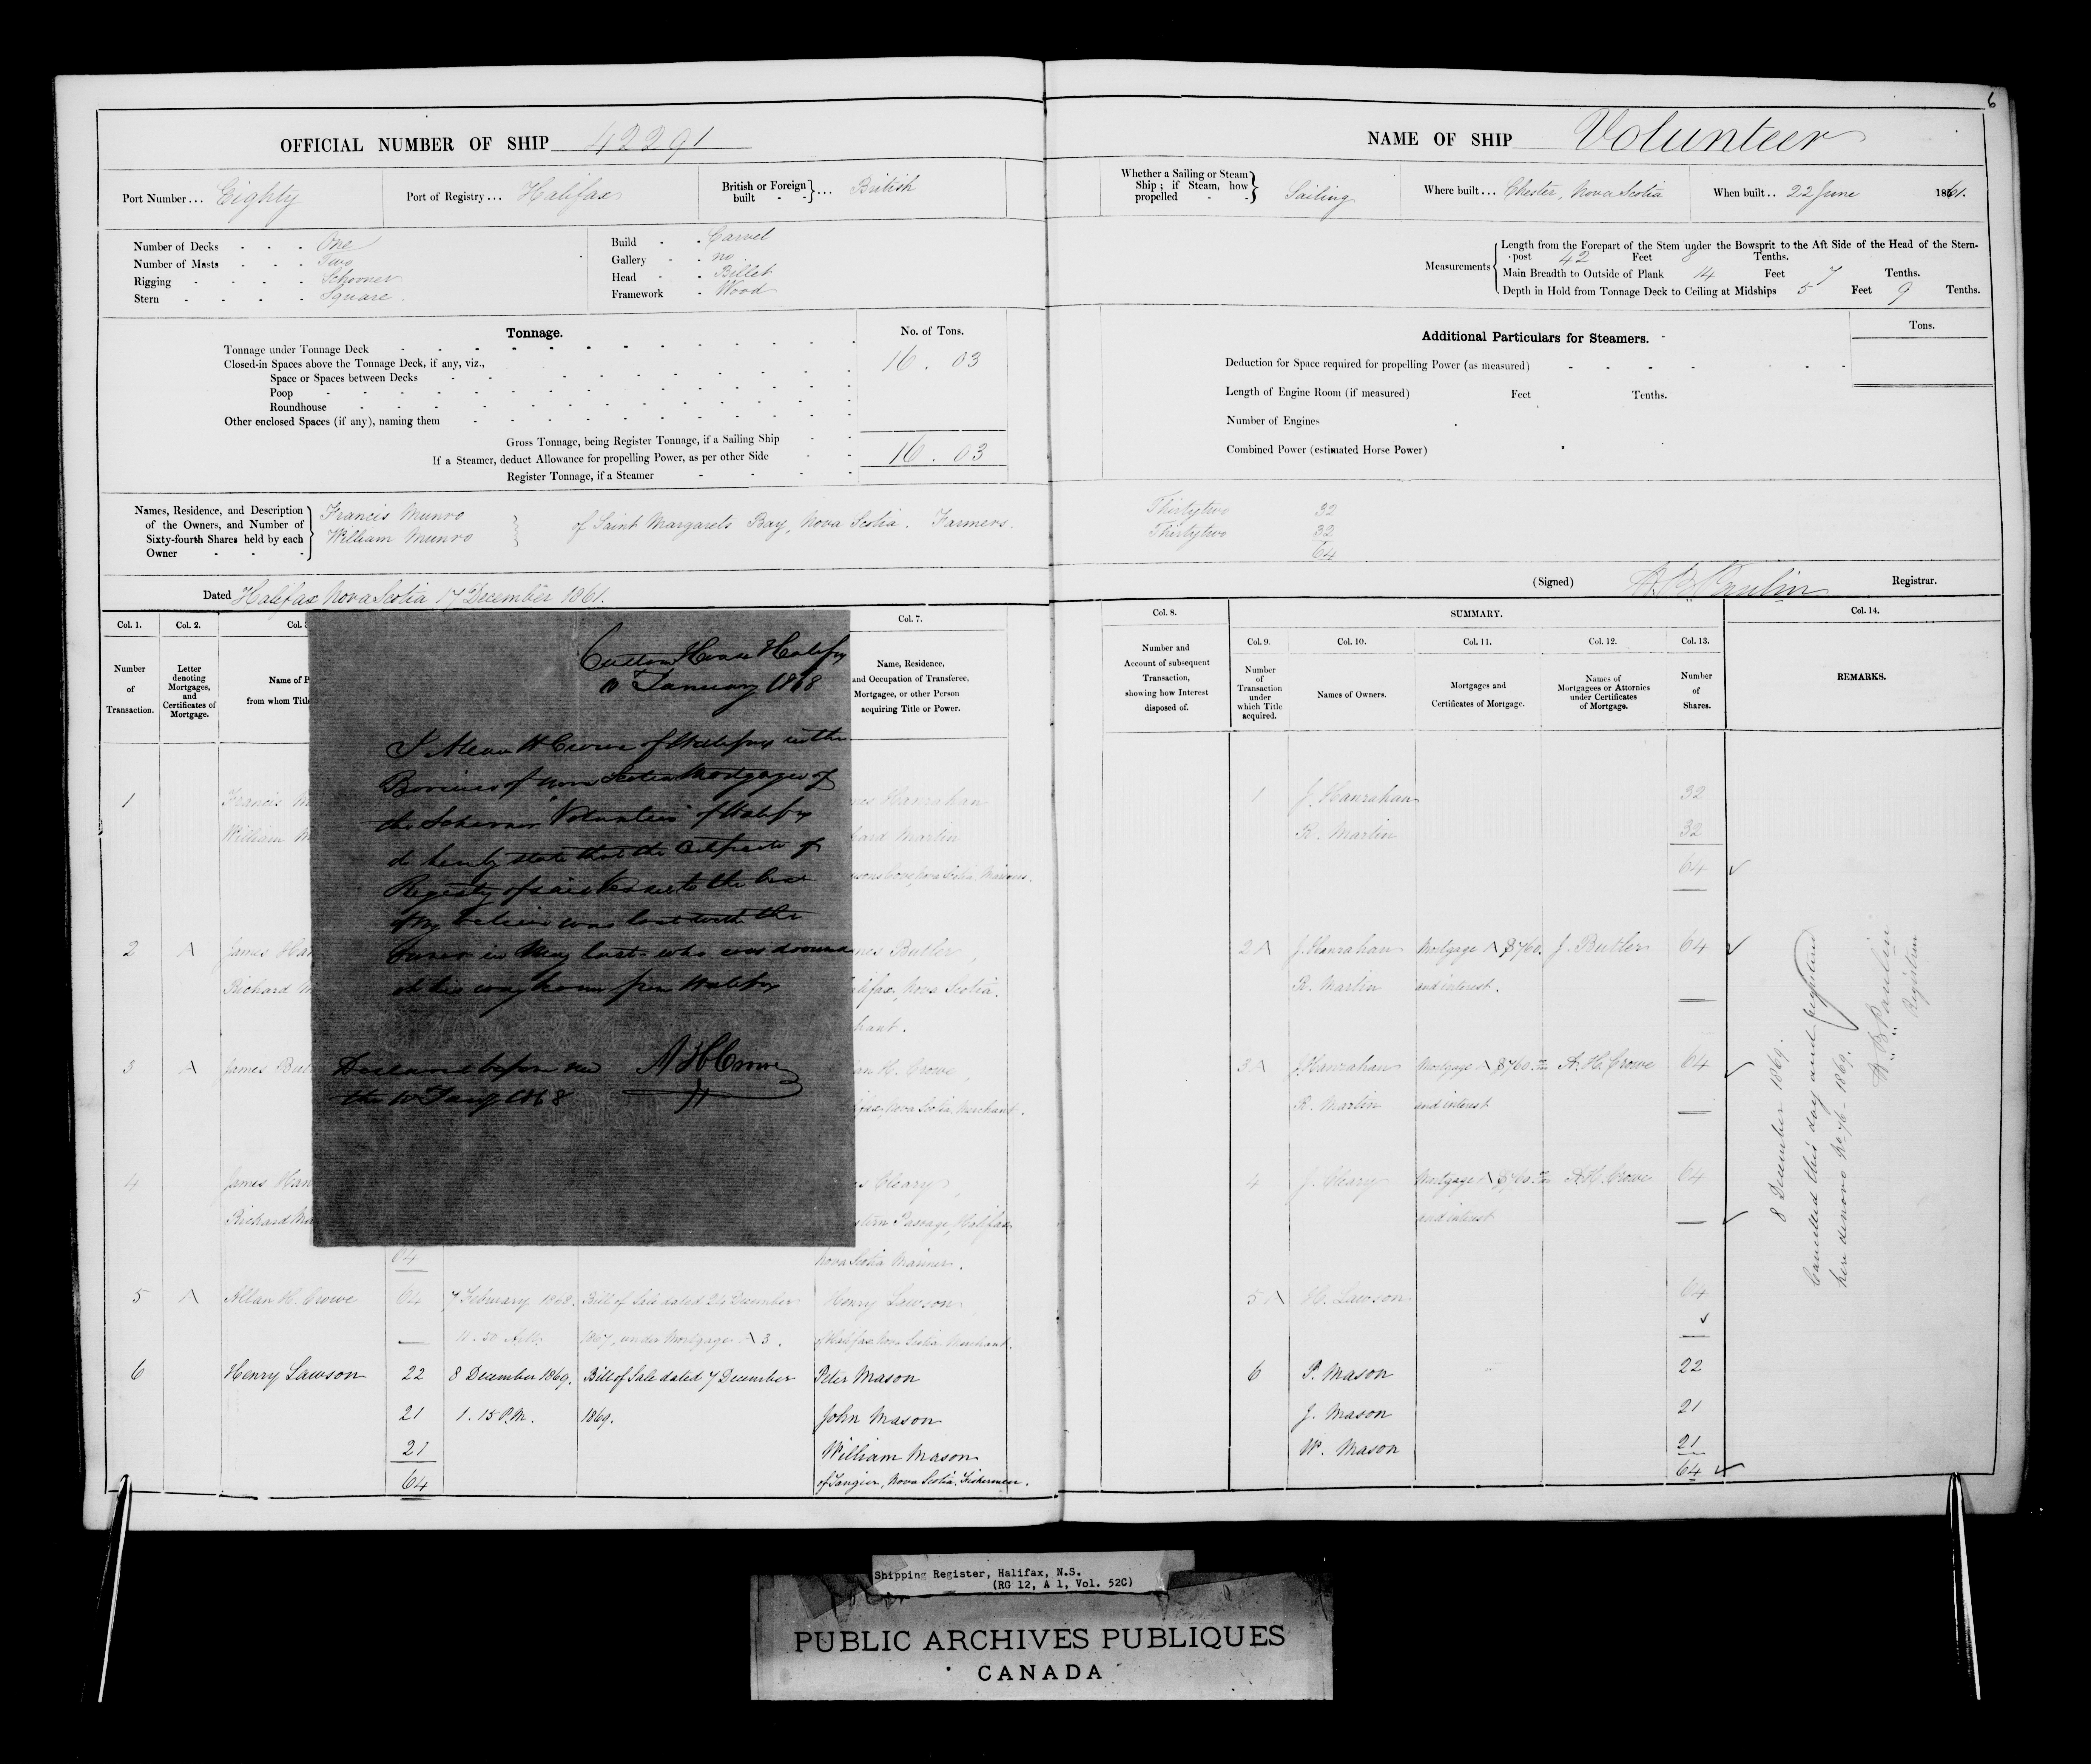 6
OFFICIAL NUMBER OF SHIP 42291
Port Number... Eighty
Port of Registry... Halifax
British or Foreign built - - }... British
Number of Decks - - - One
Number of Masts - - - Two
Rigging - - - - Schooner
Stern - - - - Square
Build - - Carvel
Gallery - - no
Head - - Billet
Framework - Wood
Tonnage.
No. of Tons.
Tonnage under Tonnage Deck
16 . 03
Closed-in Spaces above the Tonnage Deck, if any, viz.,
Space or Spaces between Decks
Poop
Roundhouse
Other enclosed Spaces (if any), naming them
Gross Tonnage, being Register Tonnage, if a Sailing Ship
16 . 03
If a Steamer, deduct Allowance for propelling Power, as per other Side
Register Tonnage, if a Steamer
Names, Residence, and Description of the Owners, and Number of Sixty-fourth Shares held by each Owner
Francis Munro
William Munro
of Saint Margarets Bay, Nova Scotia. Farmers.
Dated Halifax Nova Scotia 17 December 1861.
NAME OF SHIP Volunteer
Whether a Sailing or Steam Ship; if Steam, how propelled - - } Sailing
Where built... Chester, Nova Scotia
When built.. 22 June 1861.
Measurements
Length from the Forepart of the Stem under the Bowsprit to the Aft Side of the Head of the Stern-
post 42 Feet 8 Tenths.
Main Breadth to Outside of Plank 14 Feet 7 Tenths.
Depth in Hold from Tonnage Deck to Ceiling at Midships 5 Feet 9 Tenths.
Additional Particulars for Steamers.
Tons.
Deduction for Space required for propelling Power (as measured)
Length of Engine Room (if measured) Feet Tenths.
Number of Engines
Combined Power (estimated Horse Power)
Thirtytwo 32
Thirtytwo 32
64
(Signed) H. B. Paulin Registrar.
Col. 1.
Number of Transaction.
Col. 2.
Letter denoting Mortgages, and Certificates of Mortgage.
Col. 3
Name of P
from whom Title
Col. 7.
Name, Residence,
and Occupation of Transferee,
Mortgagee, or other Person
acquiring Title or Power.
Custom House Halifax
10 January 1868
I Allan H Crowe of Halifax in the
Province of Nova Scotia Mortgagee of
the Schooner "Volunteer" of Halifax
do hereby state that the Certificate of
Registry of said Vessel to the best
of my belief was lost with the
Owner in May last who was drowned
on his way home from Halifax
A H Crowe
Declared before me
the 10 Jany 1868
1 Francis M
William M
mes Hanrahan
hard Martin
sonscove, Nova Scotia, Mariners.
2 A James Han
Richard M
mes Butler,
lifax, Nova Scotia.
hant.
3 A James But
an H. Crowe,
ifax, Nova Scotia, Merchant.
4 James Han
Richard Ma
64
s Cleary,
stern Passage, Halifax
Nova Scotia Mariner.
5 A Allan H. Crowe 64 7 February 1868. Bill of Sale dated 24 December Henry Lawson,
11.30 A.M. 1867, under Mortgage A 3. of Halifax Nova Scotia. Merchant.
6 Henry Lawson 22 8 December 1869. Bill of Sale dated 7 December Peter Mason
21 1.15 P.M. 1869. John Mason
21 William Mason
64 of Tangier, Nova Scotia, Fishermen.
Col. 8.
Number and Account of subsequent Transaction, showing how Interest disposed of.
SUMMARY.
Col. 9.
Number of Transaction under which Title acquired.
Col. 10.
Names of Owners.
Col. 11.
Mortgages and Certificates of Mortgage.
Col. 12.
Names of Mortgagees or Attornies under Certificates of Mortgage.
Col. 13.
Number of Shares.
Col. 14.
REMARKS.
1 J. Hanrahan 32
R. Martin 32
64
2 A J. Hanrahan Mortgage A $760. J. Butler 64
R. Martin and interest.
3 A J. Hanrahan Mortgage A $760. A. H. Crowe 64
R. Martin and interest
4 J. Cleary Mortgage A $760. A. H. Crowe 64
and interest
5 A H. Lawson 64
6 P. Mason 22
J. Mason 21
W. Mason 21
64
8 December 1869.
Cancelled this day and registered
here denovo No. 76 - 1869.
H. B. Paulin
Registrar
Shipping Register, Halifax, N.S.
(RG 12, A 1, Vol. 52C)
PUBLIC ARCHIVES PUBLIQUES
CANADA